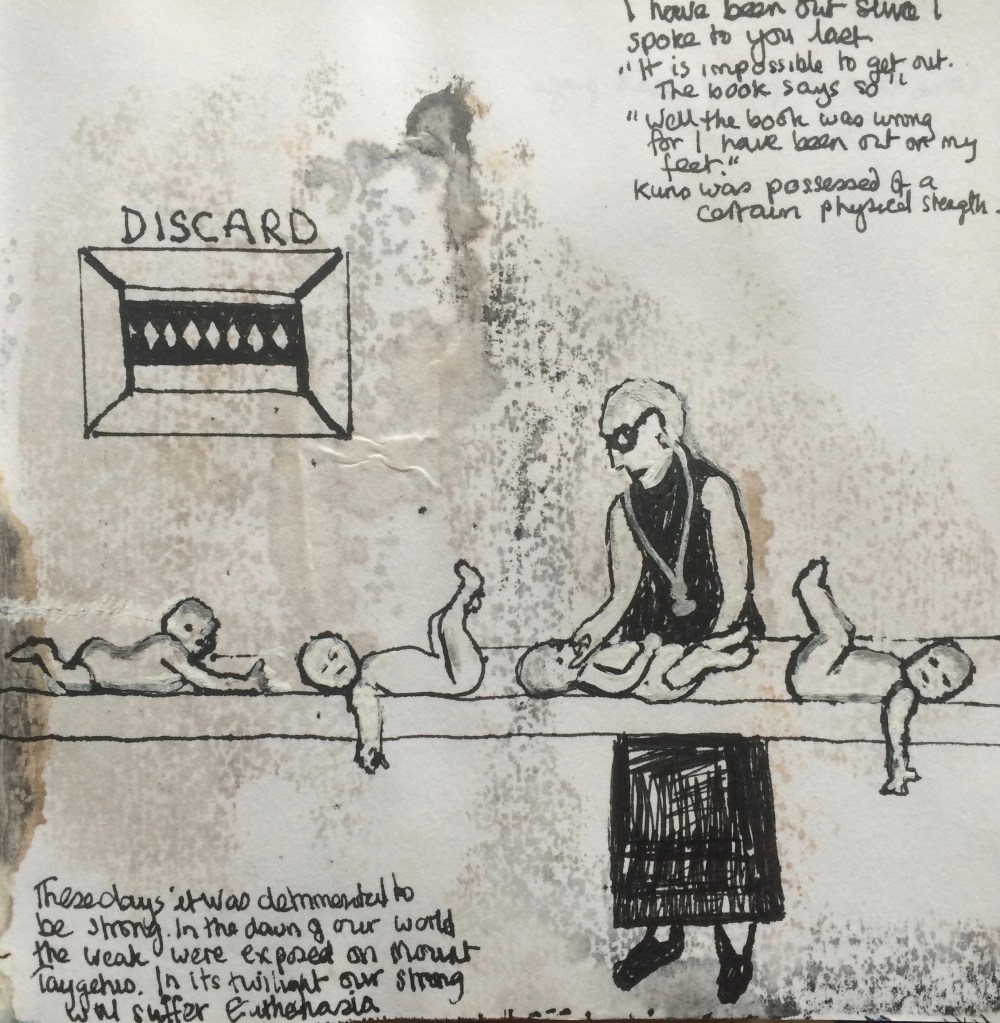 I have been out since I
spoke to you last
"It is impossible to get out.
The book says so"
"Well the book was wrong
for I have been out on my
feet."
Kuno was possessed of a
certain physical strength.
DISCARD
These days it was detrimental to
be strong. In the dawn of our world
the weak were exposed on Mount
Taygetus. In its twilight our strong
will suffer Euthenasia